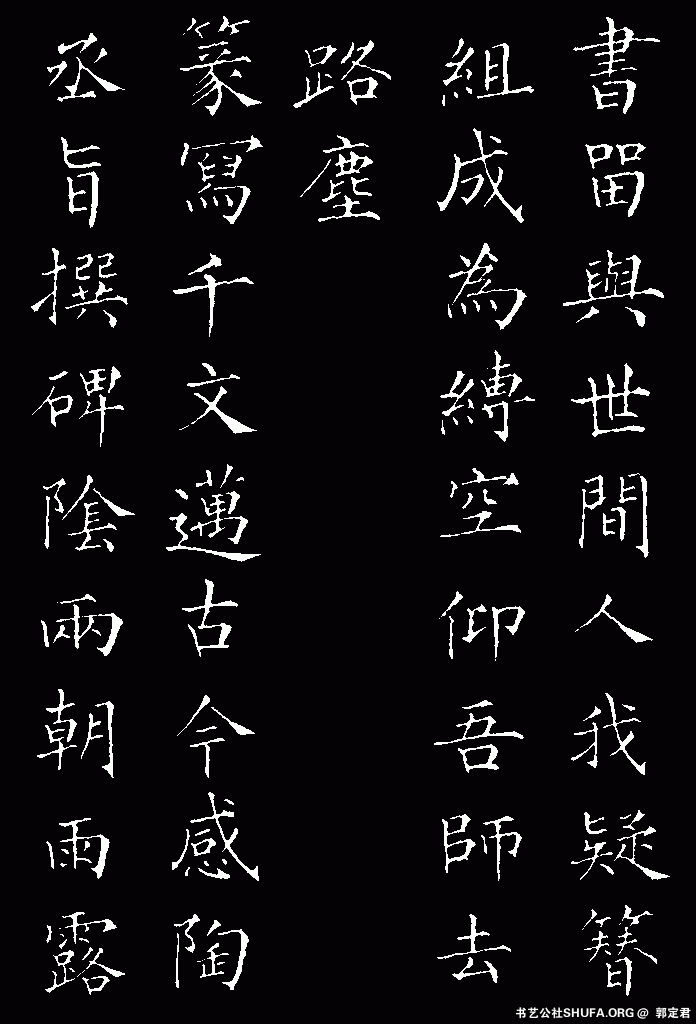 書畱與世間人我疑簪
組成為縛空仰吾師去
路塵
篆寫千文邁古今感陶
丞旨撰碑陰兩朝雨露
书艺公社SHUFA.ORG @ 郭定君